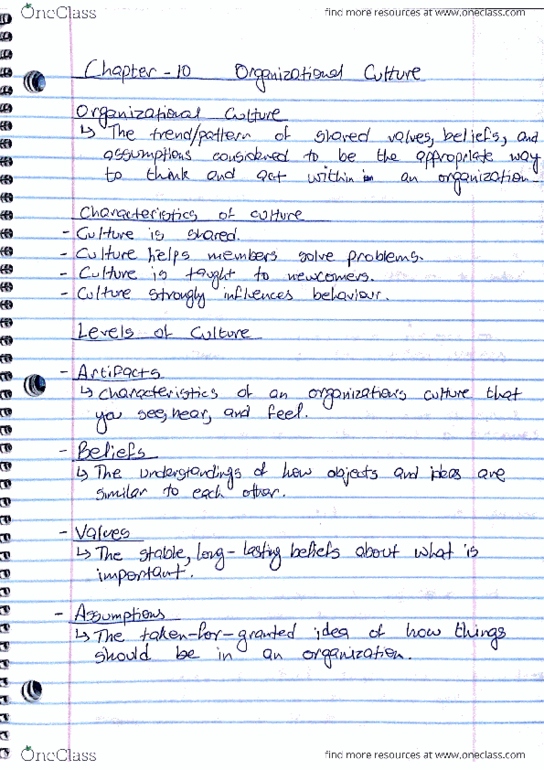 OneClass
find more resources at www.oneclass.com
Chapter-10 Organizational Culture
Organizational Culture
↳ The trend/pattern of shared values, beliefs, and
assumptions considered to be the appropriate way
to think and act within an organization.
Characteristics of culture
- Culture is shared.
- Culture helps members solve problems.
- Culture is taught to newcomers.
- Culture strongly influences behaviour.
Levels of Culture
- Artifacts
↳ Characteristics of an organizations culture that
you see, hear, and feel.
- Beliefs
↳ The understandings of how objects and ideas are
similar to each other.
- Values
↳ The stable, long-lasting beliefs about what is
important.
- Assumptions
↳ The taken-for-granted idea of how things
should be in an organization.
OneClass
find more resources at www.oneclass.com